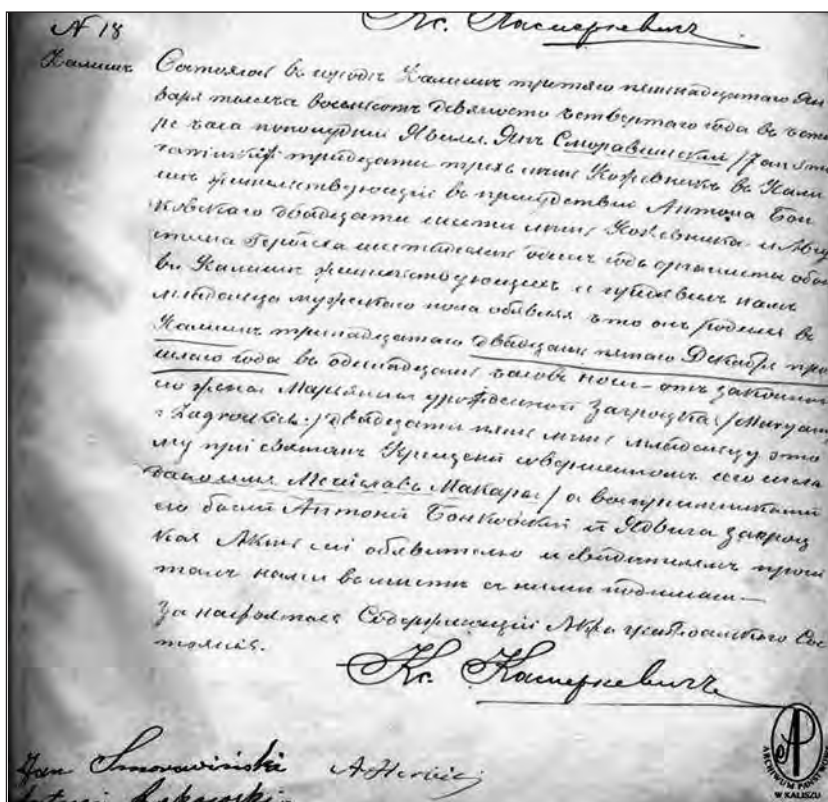 Кс. Каспаркевичъ
N 18
Калишъ
Состоялся въ городѣ Калишѣ третьяго пятнадцатаго Ян
варя тысяча восемьсотъ девяносто четвертаго года въ четы
ре часа пополудни Явился Янъ Сморавинскій /Jan Smo
rawiński/ тридцати трехъ лѣтъ Кожевникъ въ Кали
шѣ жительствующій въ присутствіи Антона Бон
ковскаго двадцати шести лѣтъ Кожевника и Авгу
стина лѣтъ органиста обо
въ Калишѣ жительствующихъ и предъявилъ намъ
младенца мужескаго пола объявляя что онъ родился въ
Калишѣ тринадцатаго двадцать пятаго Декабря про
шлаго года въ одинадцать часовъ ночи отъ законной
его жены Марьянны урожденной Загроцкая /Maryan
двадцати пяти лѣтъ младенцу это
му при святомъ Крещеніи совершенномъ сего числа
дано имя а воспріемниками
его были Антоній Бонковскій и Ядвига Загроц
кая Актъ сей объявителю и свидѣтелямъ прочи
танъ нами вмѣстѣ съ ними подписанъ —
За настоятеля Содержащій Акты гражданскаго Сос
тоянія.
Кс. Каспаркевичъ
Jan Smorawiński
ARCHIWUM PAŃSTWOWE
W KALISZU